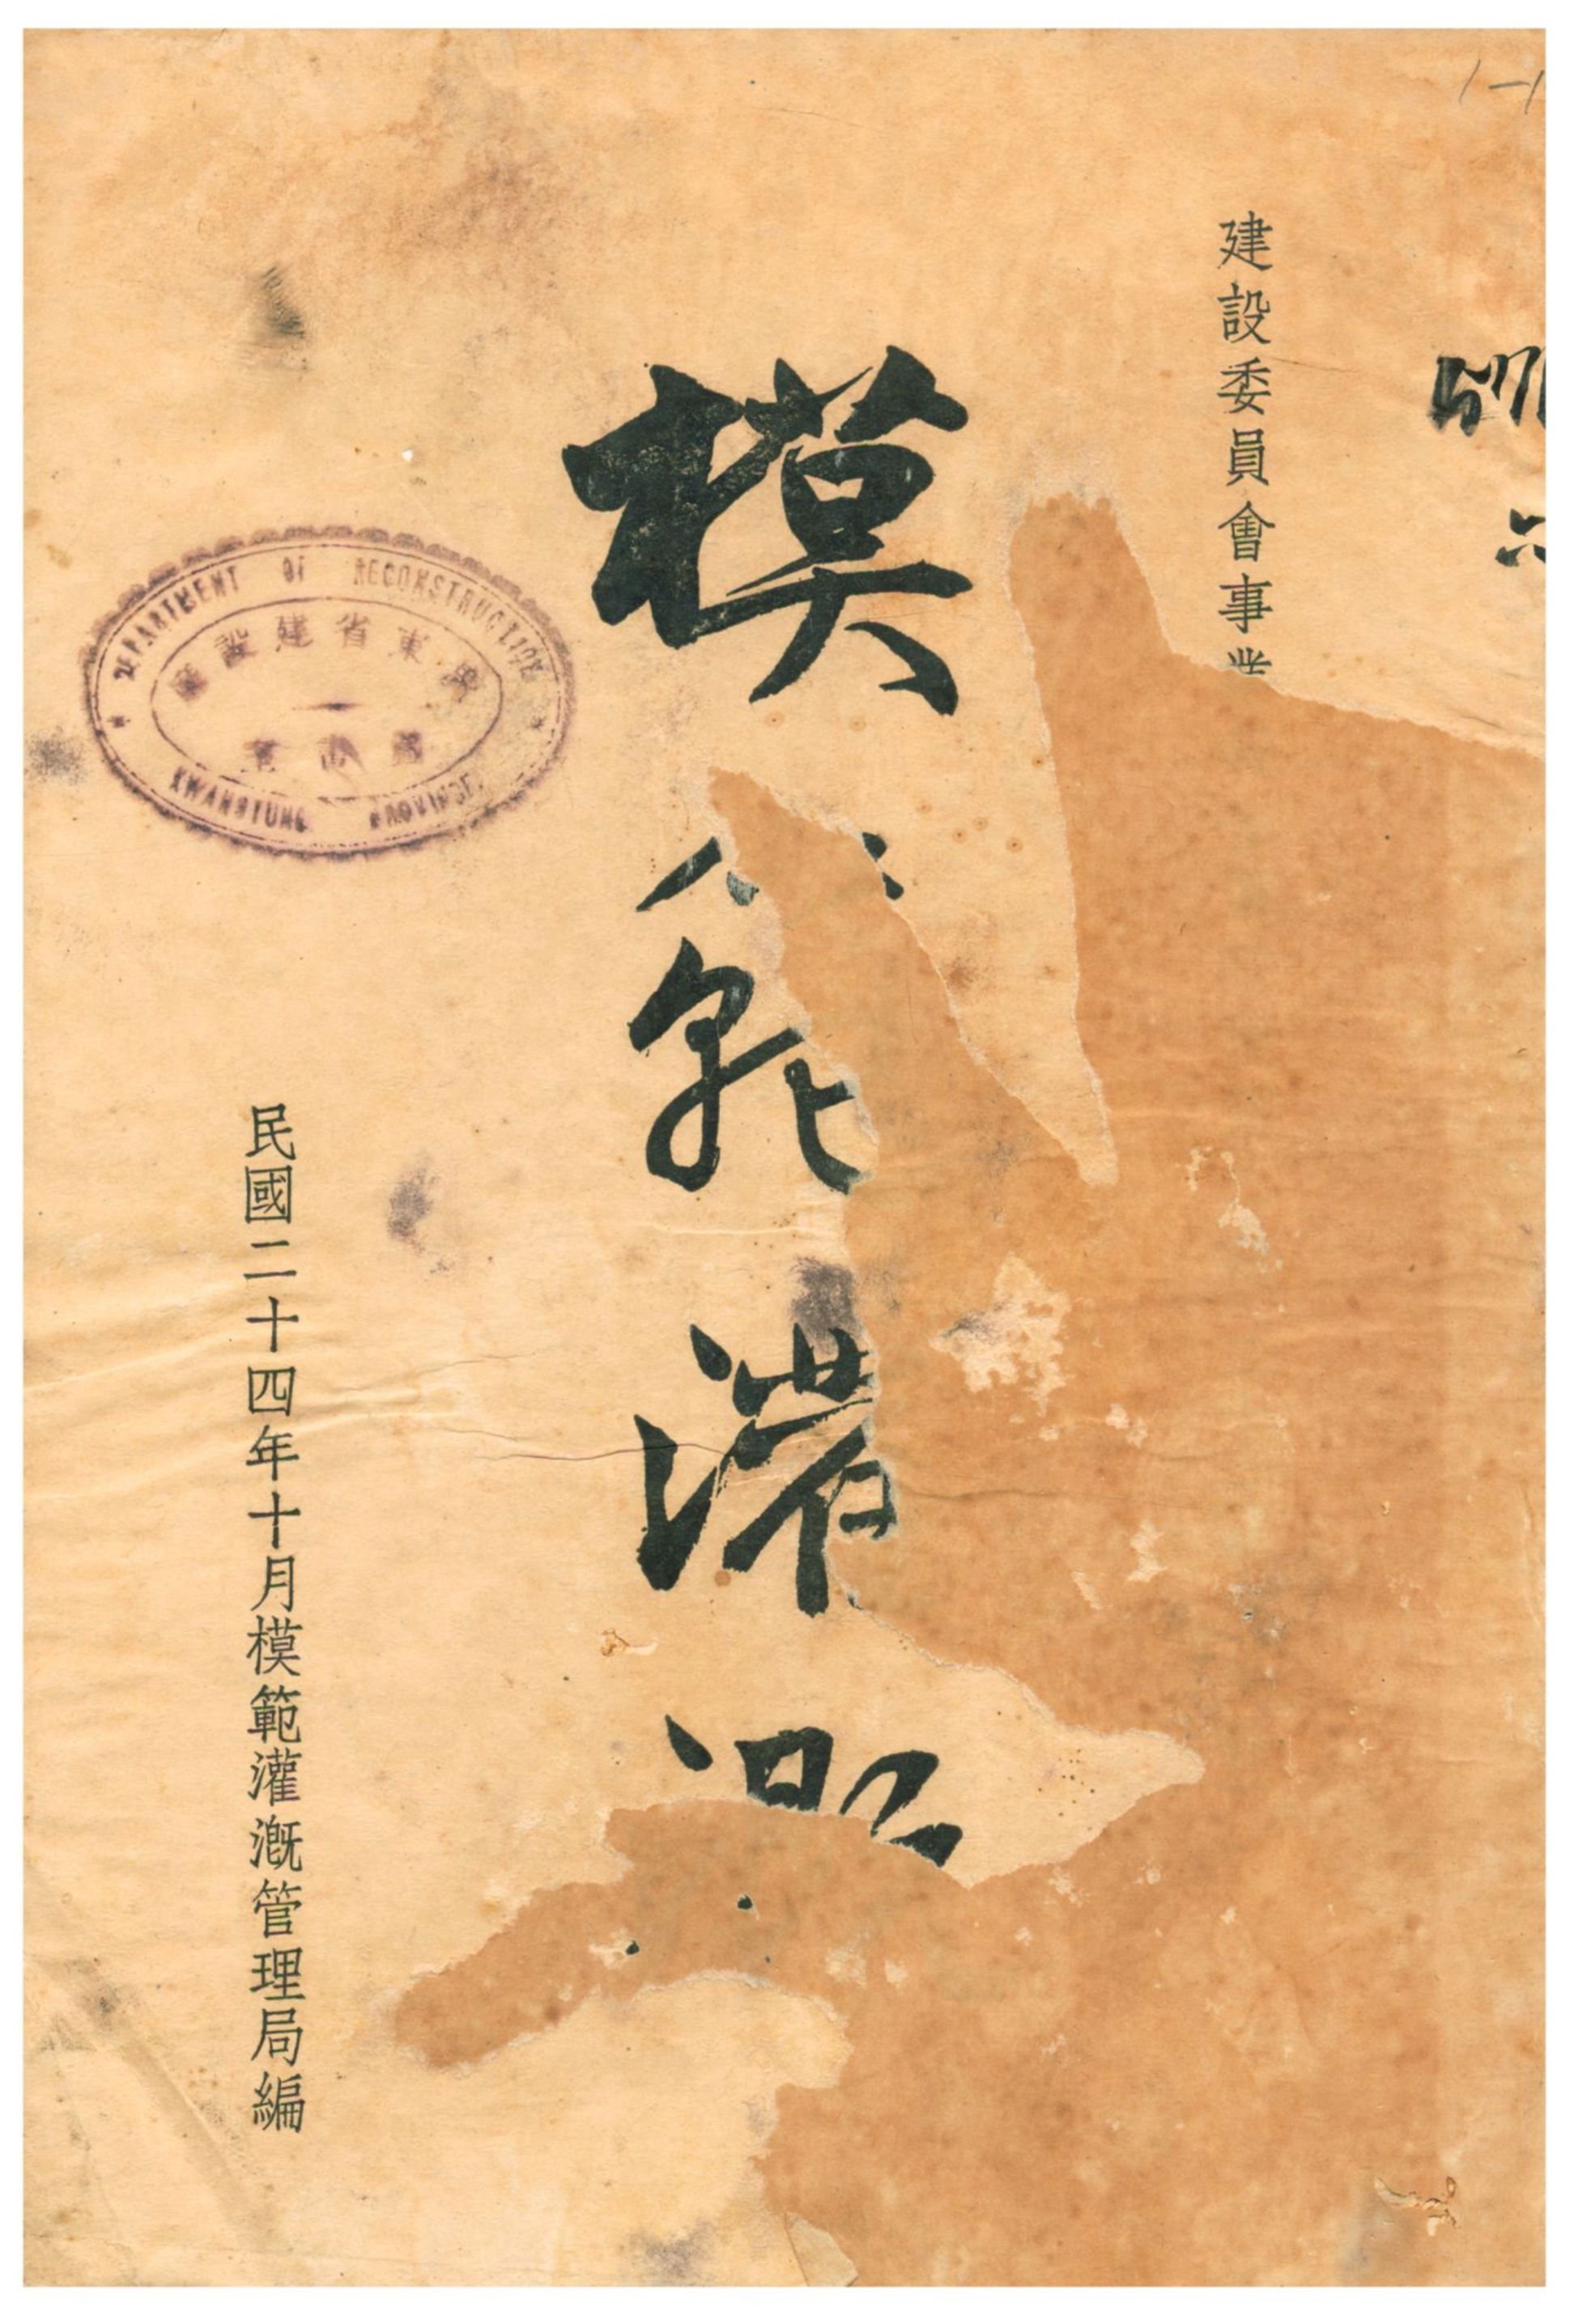 1-1
建設委員會事業
模範灌溉
民國二十四年十月模範灌溉管理局編
DEPARTMENT OF RECONSTRUCTION
廣東省建設廳
圖書室
KWANGTUNG PROVINCE